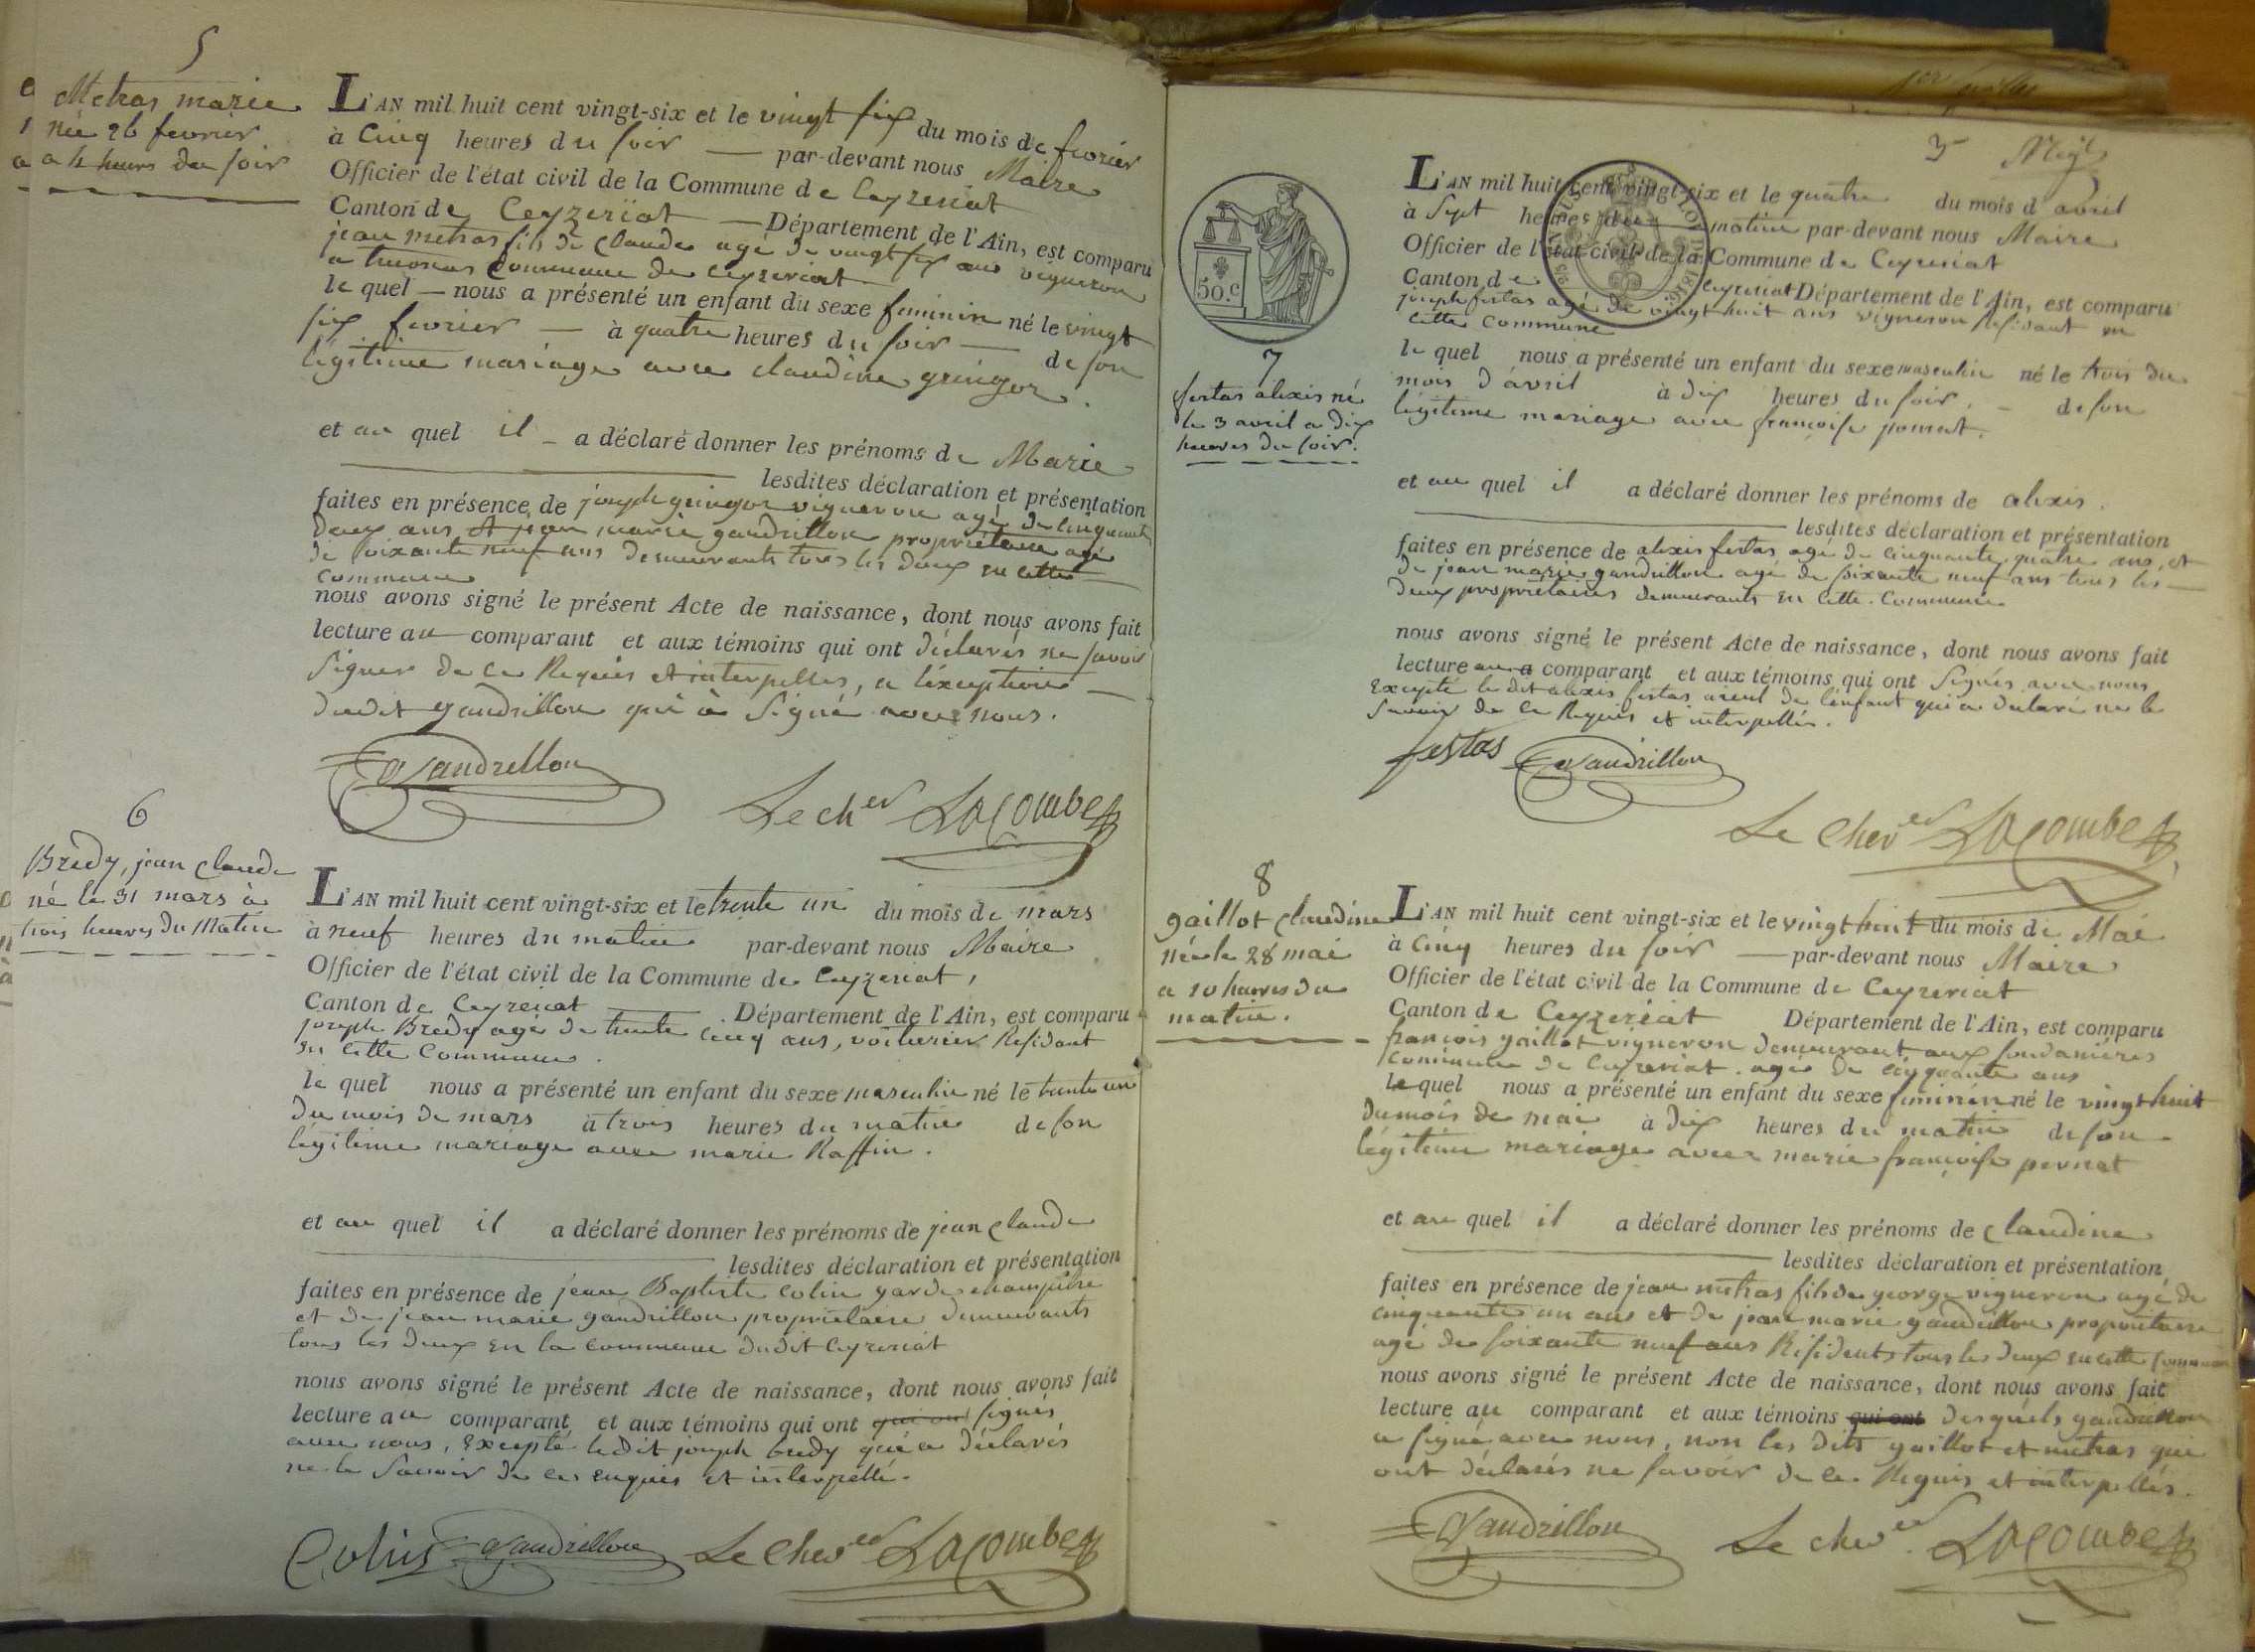 5
Metras marie
née 26 fevrier
a 4 heures du soir
L'AN mil huit cent vingt-six et le vingt six du mois de fevrier
à Cinq heures du soir par-devant nous Maire
Officier de l'état civil de la Commune de Ceyzeriat
Canton de Ceyzeriat Département de l'Ain, est comparu
jean metras fils de Claude agé de vingt six ans vigneron
a commune de ceyzeriat
le quel nous a présenté un enfant du sexe feminin né le vingt
six fevrier à quatre heures du soir de son
légitime mariage avec claudine gringoz
et au quel il a déclaré donner les prénoms de Marie
lesdites déclaration et présentation
faites en présence de joseph gringoz vigneron agé de cinquante
deux ans et jean marie gandrillon propriétaire agé
de soixante neuf ans demeurants tous les deux en cette
commune
nous avons signé le présent Acte de naissance, dont nous avons fait
lecture au comparant et aux témoins qui ont déclarés ne savoir
signer de ce Requis et interpellés, a l'exception
dudit gandrillon qui à signé avec nous.
Gandrillon
Le cher Lacombe
6
Bredy, jean Claude
né le 31 mars à
trois heures du Matin
L'AN mil huit cent vingt-six et le trente un du mois de mars
à neuf heures du matin par-devant nous Maire
Officier de l'état civil de la Commune de Ceyzeriat,
Canton de Ceyzeriat Département de l'Ain, est comparu
joseph Bredy agé de trente cinq ans, voiturier Residant
en cette Commune.
le quel nous a présenté un enfant du sexe masculin né le trente un
du mois de mars à trois heures du matin de son
légitime mariage avec marie Raffin.
et au quel il a déclaré donner les prénoms de jean Claude
lesdites déclaration et présentation
faites en présence de jean Baptiste Colin garde champêtre
et de jean marie gandrillon propriétaire demeurants
tous les deux en la commune dudit Ceyzeriat
nous avons signé le présent Acte de naissance, dont nous avons fait
lecture au comparant et aux témoins qui ont qui ont signés
avec nous, Excepté ledit joseph bredy qui a déclarés
ne le savoir de ce enquis et interpellé.
Colin Gandrillon Le chever Lacombe
3
50.c
7
festas alexis né
le 3 avril a dix
heures du soir.
L'AN mil huit cent vingt-six et le quatre du mois d'avril
à Sept heures du matin par-devant nous Maire
Officier de l'état civil de la Commune de Ceyzeriat
Canton de Ceyzeriat Département de l'Ain, est comparu
joseph festas agé de vingt huit ans vigneron Residant en
cette commune
le quel nous a présenté un enfant du sexe masculin né le trois du
mois d'avril à dix heures du soir, de son
légitime mariage avec françoise
et au quel il a déclaré donner les prénoms de alexis.
lesdites déclaration et présentation
faites en présence de alexis festas agé de cinquante quatre ans, et
de jean marie gandrillon agé de soixante neuf ans tous les
deux propriétaires demeurants en cette Commune
nous avons signé le présent Acte de naissance, dont nous avons fait
lecture au comparant et aux témoins qui ont signés avec nous
Excepté le dit alexis festas aieul de l'enfant qui a declaré ne le
savoir de ce Requis et interpellés.
festas Gandrillon
Le Chever Lacombe
8
gaillot claudine
née le 28 mai
a 10 heures du
matin.
L'AN mil huit cent vingt-six et le vingt huit du mois de Mai
à Cinq heures du soir par-devant nous Maire
Officier de l'état civil de la Commune de Ceyzeriat
Canton de Ceyzeriat Département de l'Ain, est comparu
françois gaillot vigneron demeurant aux soudanières
commune de Ceyzeriat. agé de cinquante ans
le quel nous a présenté un enfant du sexe feminin né le vingt huit
du mois de mai à dix heures du matin de son
légitime mariage avec marie françoise pernat
et au quel il a déclaré donner les prénoms de Claudine
lesdites déclaration et présentation
faites en présence de jean metras fils de george vigneron agé de
cinquante un ans et de jean marie gandrillon propriétaire
agé de soixante neuf ans Residents tous les deux en cette commune
nous avons signé le présent Acte de naissance, dont nous avons fait
lecture au comparant et aux témoins qui ont desquels gandrillon
a signé avec nous, non les dits gaillot et metras qui
ont déclarés ne savoir de ce Requis et interpellés.
Gandrillon Le chever. Lacombe